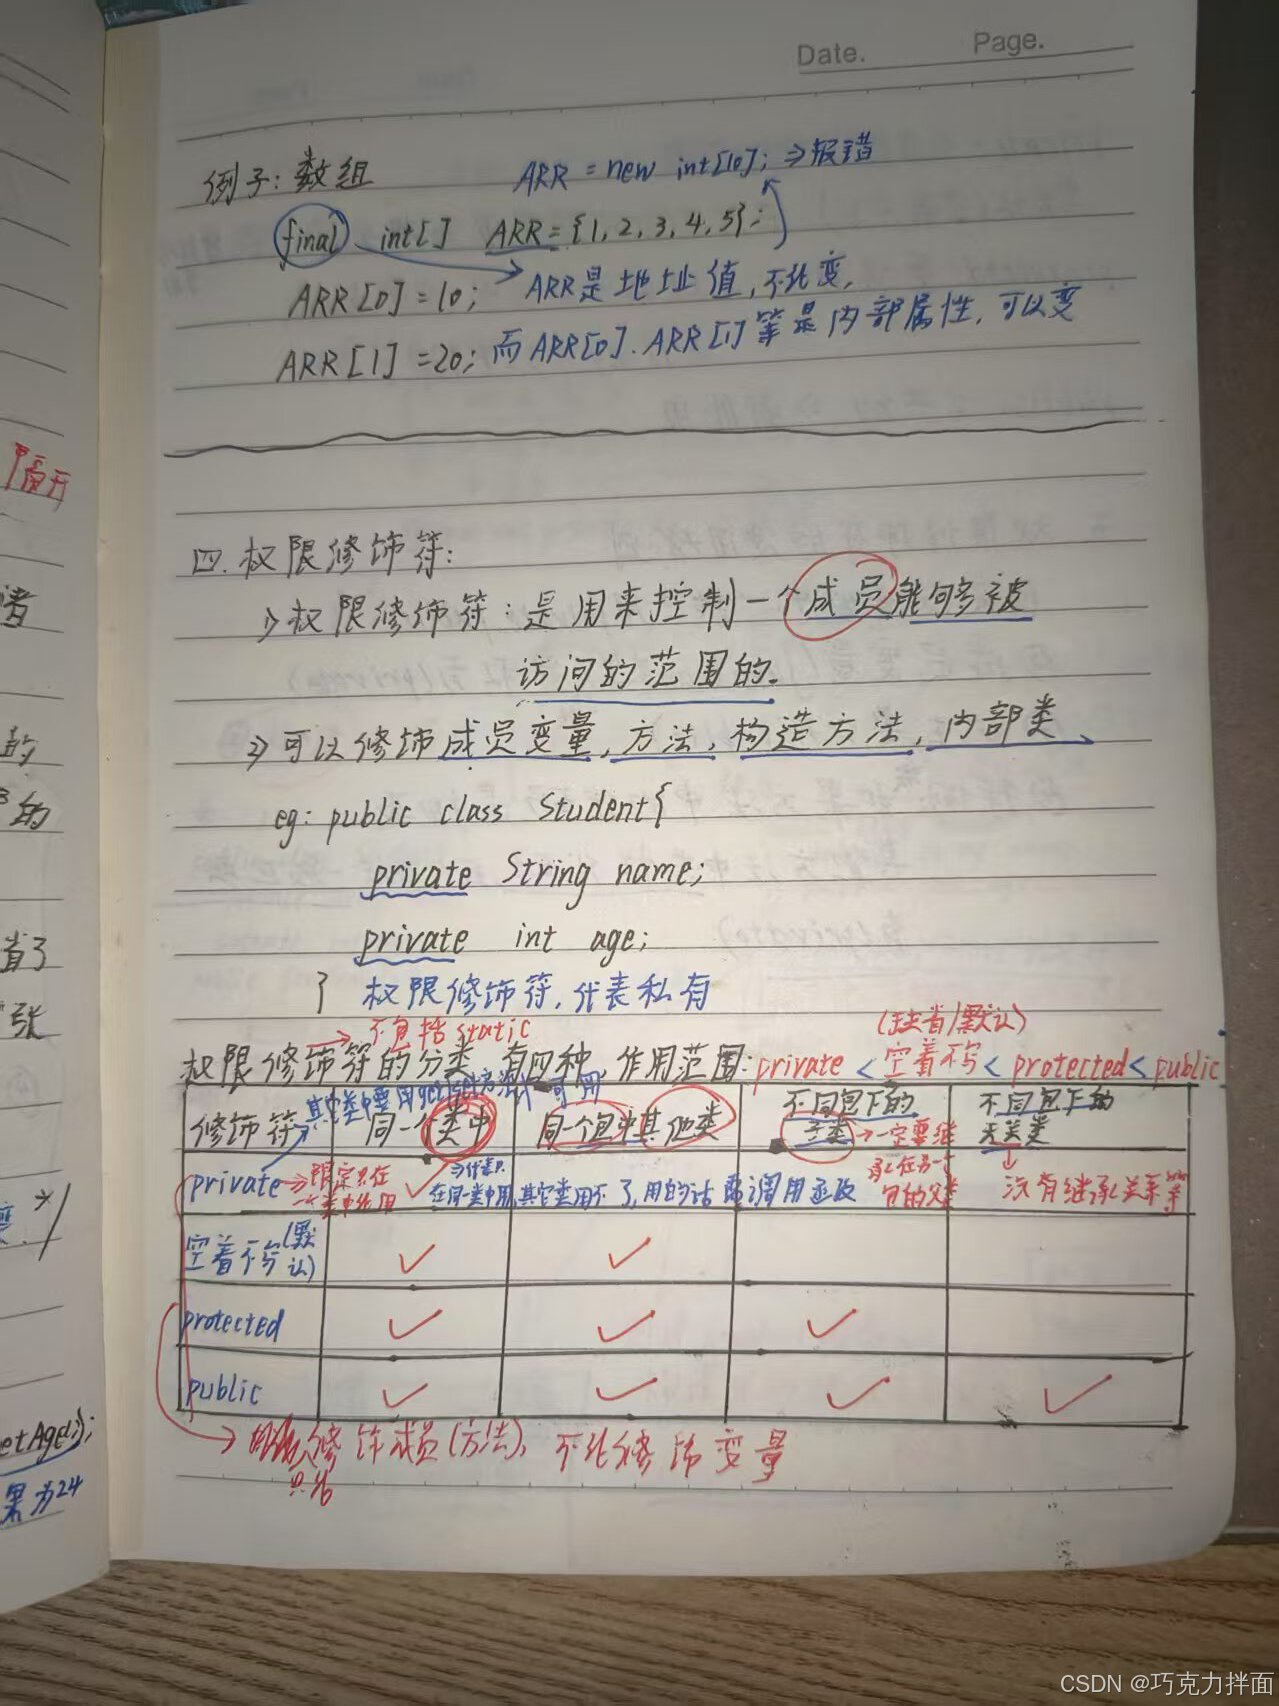 Date.
Page.
例子：数组
ARR = new int[10]; ⇒报错
final int[] ARR = {1, 2, 3, 4, 5};
ARR[0] = 10;
ARR是地址值，不能变，
ARR[1] = 20;
而ARR[0]. ARR[1]等是内部属性，可以变
四. 权限修饰符：
1> 权限修饰符：是用来控制一个成员能够被
访问的范围的。
2> 可以修饰成员变量，方法，构造方法，内部类、
eg: public class Student{
private String name;
private int age;
} 权限修饰符，代表私有
不包括static
(缺省/默认)
权限修饰符的分类 有四种，作用范围：private < 空着不写 < protected < public
其它类中要用get/set方法 可用
修饰符 同一个类中 同一个包中其他类 不同包下的 不同包下的
子类 → 一定要继 无关类
承在另一个
包的父类
private → 限定只在 ✓ ⇒代表只
一类中使用 在同一类中用，其它类用不了，用的话 需调用 没有继承关系等
空着不写(默 ✓ ✓
认)
protected ✓ ✓ ✓
public ✓ ✓ ✓ ✓
修饰成员(方法)，不能修饰变量
只能
隔开
的
的
省了
张
*/
etAge();
果为24
CSDN @巧克力拌面